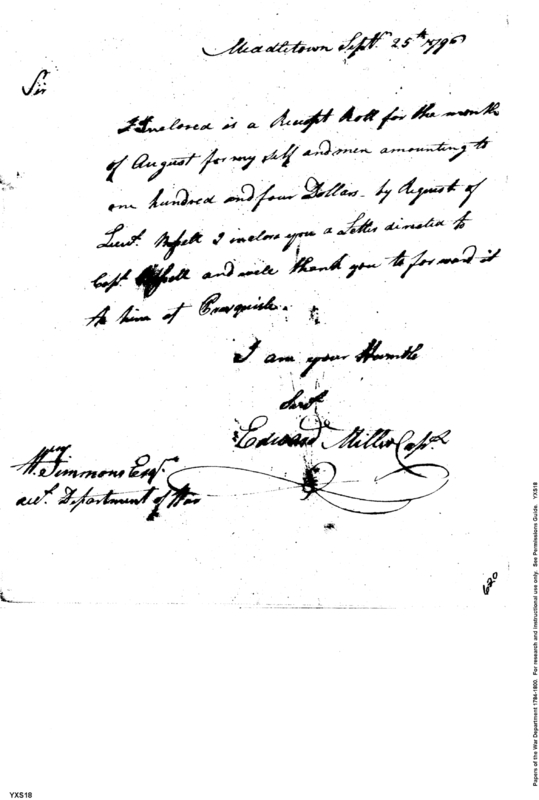 Middletown Septr. 25th 1796
Sir
Inclosed is a Receipt Roll for the month
of August for my self and men amounting to
one hundred and four Dollars - by Request of
Lieut. I inclose you a Letter directed to
Capt. and will thank you to forward it
to him at
I am your Humble
Servt.
Edward Miller Capt.
Wm. Simmons Esqr.
acct. Department of War
620
Papers of the War Department 1784-1800. For research and instructional use only. See Permissions Guide. YXS18
YXS18